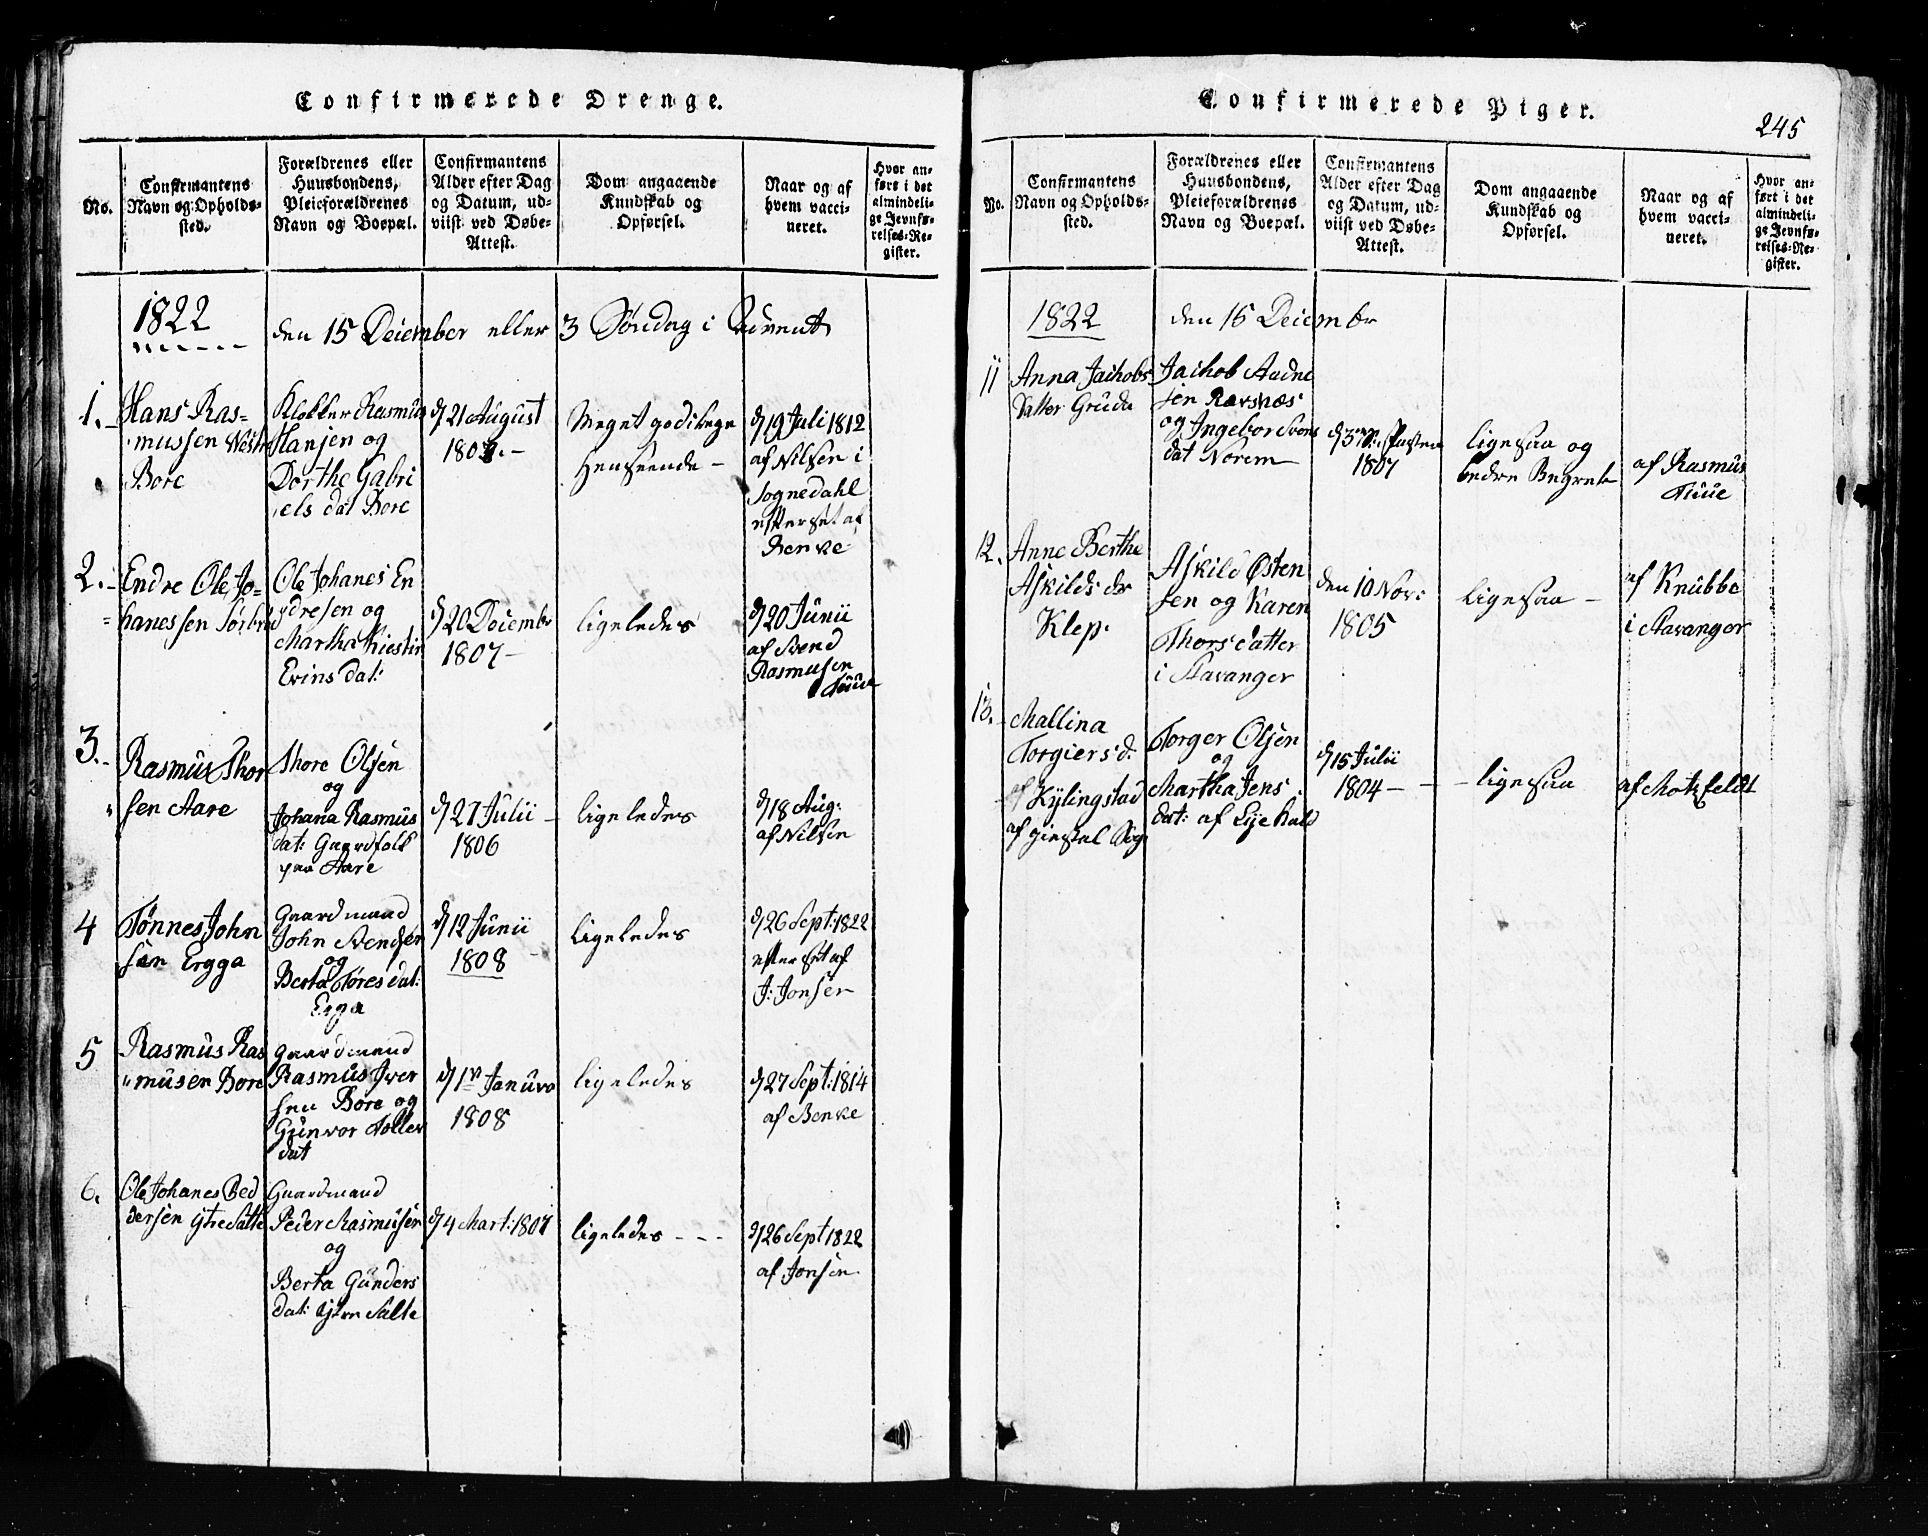 Confirmerede Drenge.
No.
Confirmantens
Navn og Opholds-
sted.
Forældrenes eller
Huusbondens,
Pleieforældrenes
Navn og Boepæl.
Confirmantens
Alder efter Dag
og Datum, ud-
viist ved Døbe-
Attest.
Dom angaaende
Kundskab og
Opførsel.
Naar og af
hvem vacci-
neret.
Hvor an-
ført i det
almindeli-
ge Jevnfø-
relses-Re-
gister.
1822
den 15 December eller 3 Søndag i Advent
1.
Hans Ras-
mussen Westr
Bore
Klokker Rasmus
Hansen og
Dorthe Gabri
els dat Bore
d 21 August
Meget godt begge
Henseende -
d 19 Juli 1812
af Nilsen i
Sognedahl
efterset af
Benke
2.
Endre Ole Jo-
hanessen Sørbrø
Ole Johanes En
dresen og
Martha Kiestin
Evins dat:
d 20 Decembr
1807 -
ligeledes
d 20 Junii
af Svend
Rasmusen
Tuue
3.
Rasmus Thor
sen Aare
Thore Olsen
og
Johana Rasmus
dat: Gaardfolk
paa Aare
d 27 Julii -
1806
ligeledes
d 18 Aug:
af Nilsen
4
Tønnes John
sen Ergga
Gaardmand
John Svendsen
og
Berta Tøres dat:
Erga
d 12 Junii
1808
ligeledes
d 26 Sept: 1822
efterset af
J: Jonsen
5
Rasmus Ras
musen Bore
Gaardmand
Rasmus Iver
sen Bore og
Gunvor Toller
dat
d 1 Januar
1808
ligeledes
d 27 Sept: 1814
af Benke
6.
Ole Johanes Ped
dersen ytre Salte
Gaardmand
Peder Rasmusen
og
Berta Gunders
dat: ytre Salte
d 4 Mart: 1807
ligeledes - - -
d 26 Sept 1822
af Jonsen
Confirmerede Piger.
245
No.
Confirmantens
Navn og Opholds-
sted.
Forældrenes eller
Huusbondens,
Pleieforældrenes
Navn og Boepæl.
Confirmantens
Alder efter Dag
og Datum, ud-
viist ved Døbe-
Attest.
Dom angaaende
Kundskab og
Opførsel.
Naar og af
hvem vacci-
neret.
Hvor an-
ført i det
almindeli-
ge Jevnfø-
relses-Re-
gister.
1822
den 15 Decembr
11
Anna Jachobs
datter Gruda
Jachob Aadne
sen Ravnæs
og Ingebor Svens
dat Norem
1807
ligesaa og
bedre Begreb
af Rasmus
Tuue
12.
Anne Berthe
Askilds dr
Klep.
Askild Østen
sen og Karen
Thors datter
i Stavanger
den 10 Nov:
1805
ligesaa -
af Knubbe
i Stavanger
13.
Mallina
Torgiers d:
af Kylingstad
af Giestal Sog
Torger Olsen
og
Martha Jens
dat: af Eije hald
d 15 Julii
1804 - -
- ligesaa
af Motzfeldt